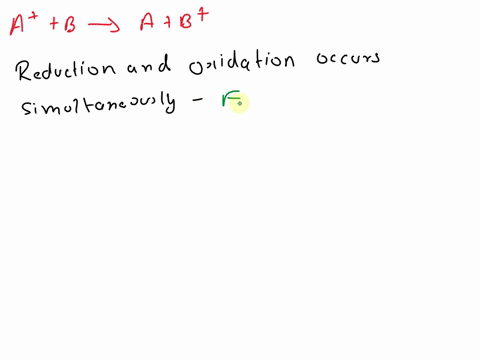 A⁺ + B → A + B⁺
Reduction and oxidation occurs
simultaneously - r